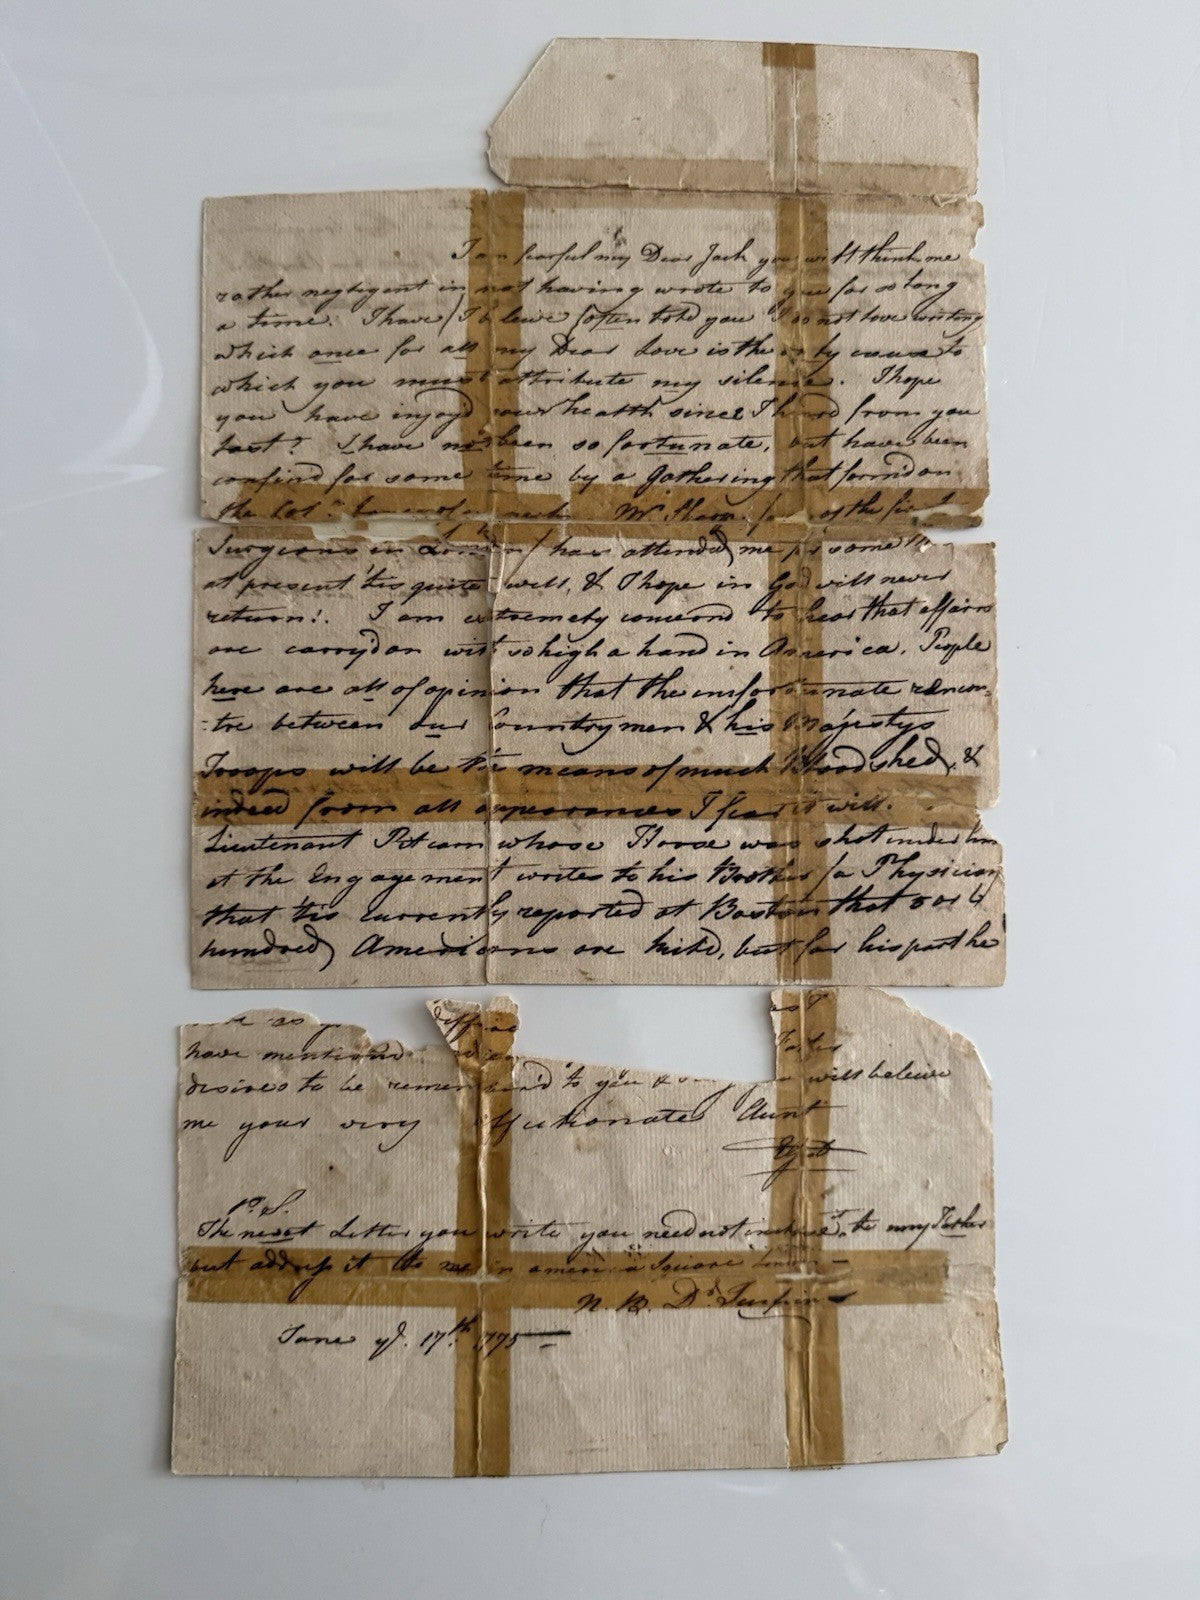 I am fearful my Dear Jack you will think me
rather neglegent in not having wrote to you for so long
a time. I have (I beleive) often told you I do not love writing
which once for all my Dear Love is the only cause to
which you must attribute my silence. I hope
you have injoy'd your health since I heard from you
last? I have not been so fortunate, but have been
confin'd for some time by a Gathering that form'd on
the Mr. Sharp of the first
Surgeons in London) has attended me
at present 'tis quite well, & I hope in God will never
return!. I am extremely concernd to hear that affairs
are carry'd on with so high a hand in America. People
here are all of opinion that the unfortunate rencon-
-tre between our Countrymen & his Majestys
Troops will be the means of much Blood shed, &
indeed from all appearances I fear it will.
Lieutenant Pitcarn whose Horse was shot under him
at the Engagement writes to his Brother (a Physician
that 'tis currently reported at Boston that 3 or 4
hundred Americans are kill'd, but for his part he
as
have mentioned
desires to be remember'd to you & will beleive
me your very affectionate Aunt
P. S.
The next Letter you write you need not inclose it to my Father
but address it to me in America Square London
N. B. Dr.
June ye. 17th. 1775